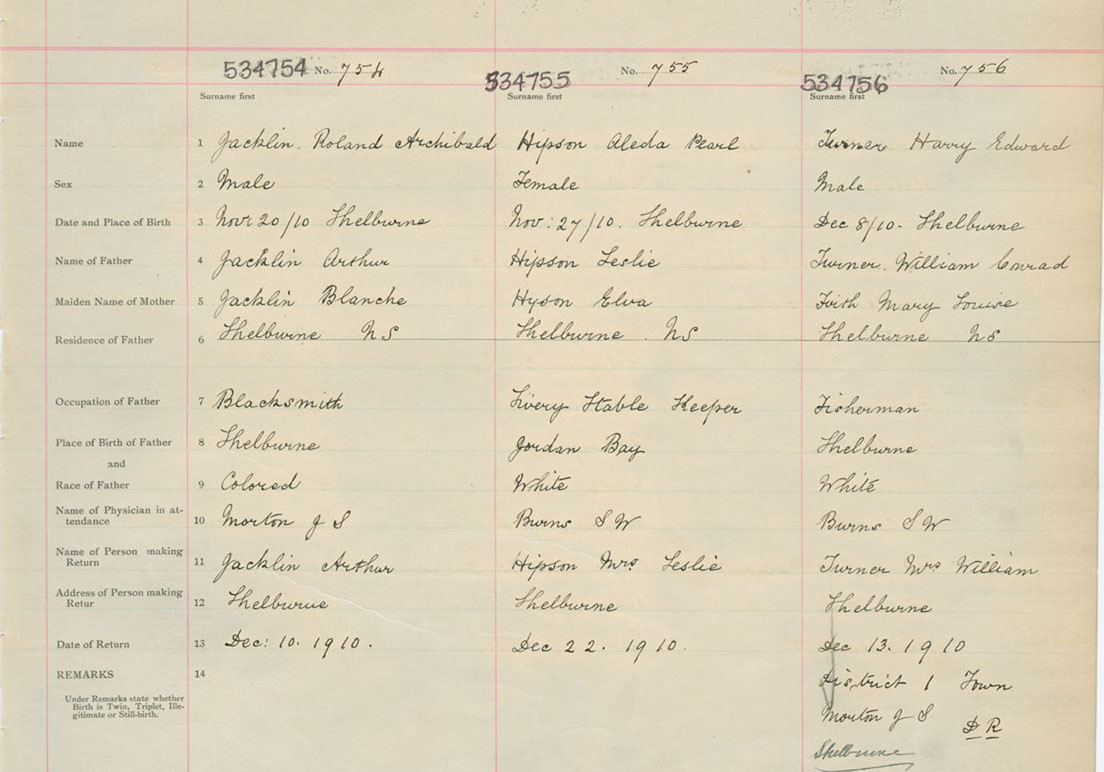 534754 No. 754 534755 No. 755 534756 No. 756
Surname first Surname first Surname first
Name 1 Jacklin Roland Archibald Hipson Aleda Pearl Turner Harry Edward
Sex 2 Male Female Male
Date and Place of Birth 3 Novr 20/10 Shelburne Nov: 27/10. Shelburne Dec 8/10. Shelburne
Name of Father 4 Jacklin Arthur Hipson Leslie Turner. William Conrad
Maiden Name of Mother 5 Jacklin Blanche Hyson Elva Firth Mary Louise
Residence of Father 6 Shelburne NS Shelburne. NS Shelburne NS
Occupation of Father 7 Blacksmith Livery Stable Keeper Fisherman
Place of Birth of Father 8 Shelburne Jordan Bay Shelburne
and
Race of Father 9 Colored White White
Name of Physician in at-
tendance 10 Morton J S Burns S W Burns S W
Name of Person making
Return 11 Jacklin Arthur Hipson Mrs Leslie Turner Mrs William
Address of Person making
Retur 12 Shelburne Shelburne Shelburne
Date of Return 13 Dec: 10. 1910. Dec 22. 1910. Dec 13. 1910
REMARKS 14 District 1 Town
Under Remarks state whether
Birth is Twin, Triplet, Ille-
gitimate or Still-birth.
Morton J S D R
Shelburne